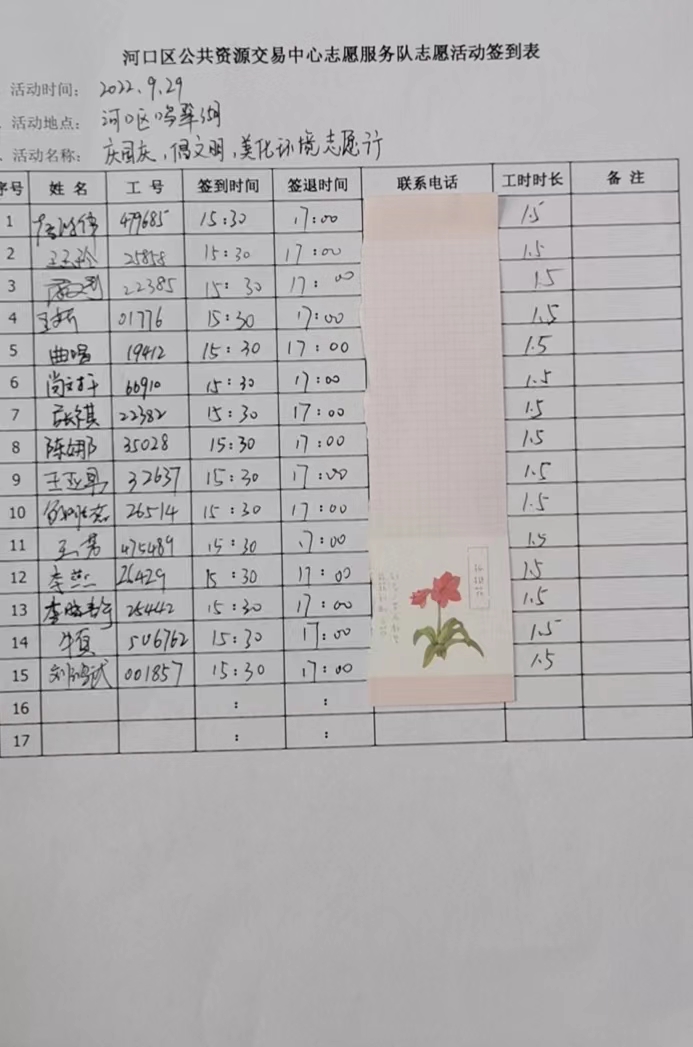 河口区公共资源交易中心志愿服务队志愿活动签到表
活动时间： 2022.9.29
活动地点： 河口区鸣翠湖
活动名称： 庆国庆，倡文明，美化环境志愿行
序号 姓名 工号 签到时间 签退时间 联系电话 工时时长 备注
1 479685 15:30 17:00 1.5
2 25858 15:30 17:00 1.5
3 22385 15:30 17:00 1.5
4 01776 15:30 17:00 1.5
5 曲唱 19412 15:30 17:00 1.5
6 尚文轩 66910 15:30 17:00 1.5
7 张祺 22382 15:30 17:00 1.5
8 陈娜 35028 15:30 17:00 1.5
9 王亚男 32637 15:30 17:00 1.5
10 26514 15:30 17:00 1.5
11 475489 15:30 17:00 1.5
12 李燕 26429 15:30 17:00 1.5
13 25442 15:30 17:00 1.5
14 506762 15:30 17:00 1.5
15 001857 15:30 17:00 1.5
16 : :
17 : :